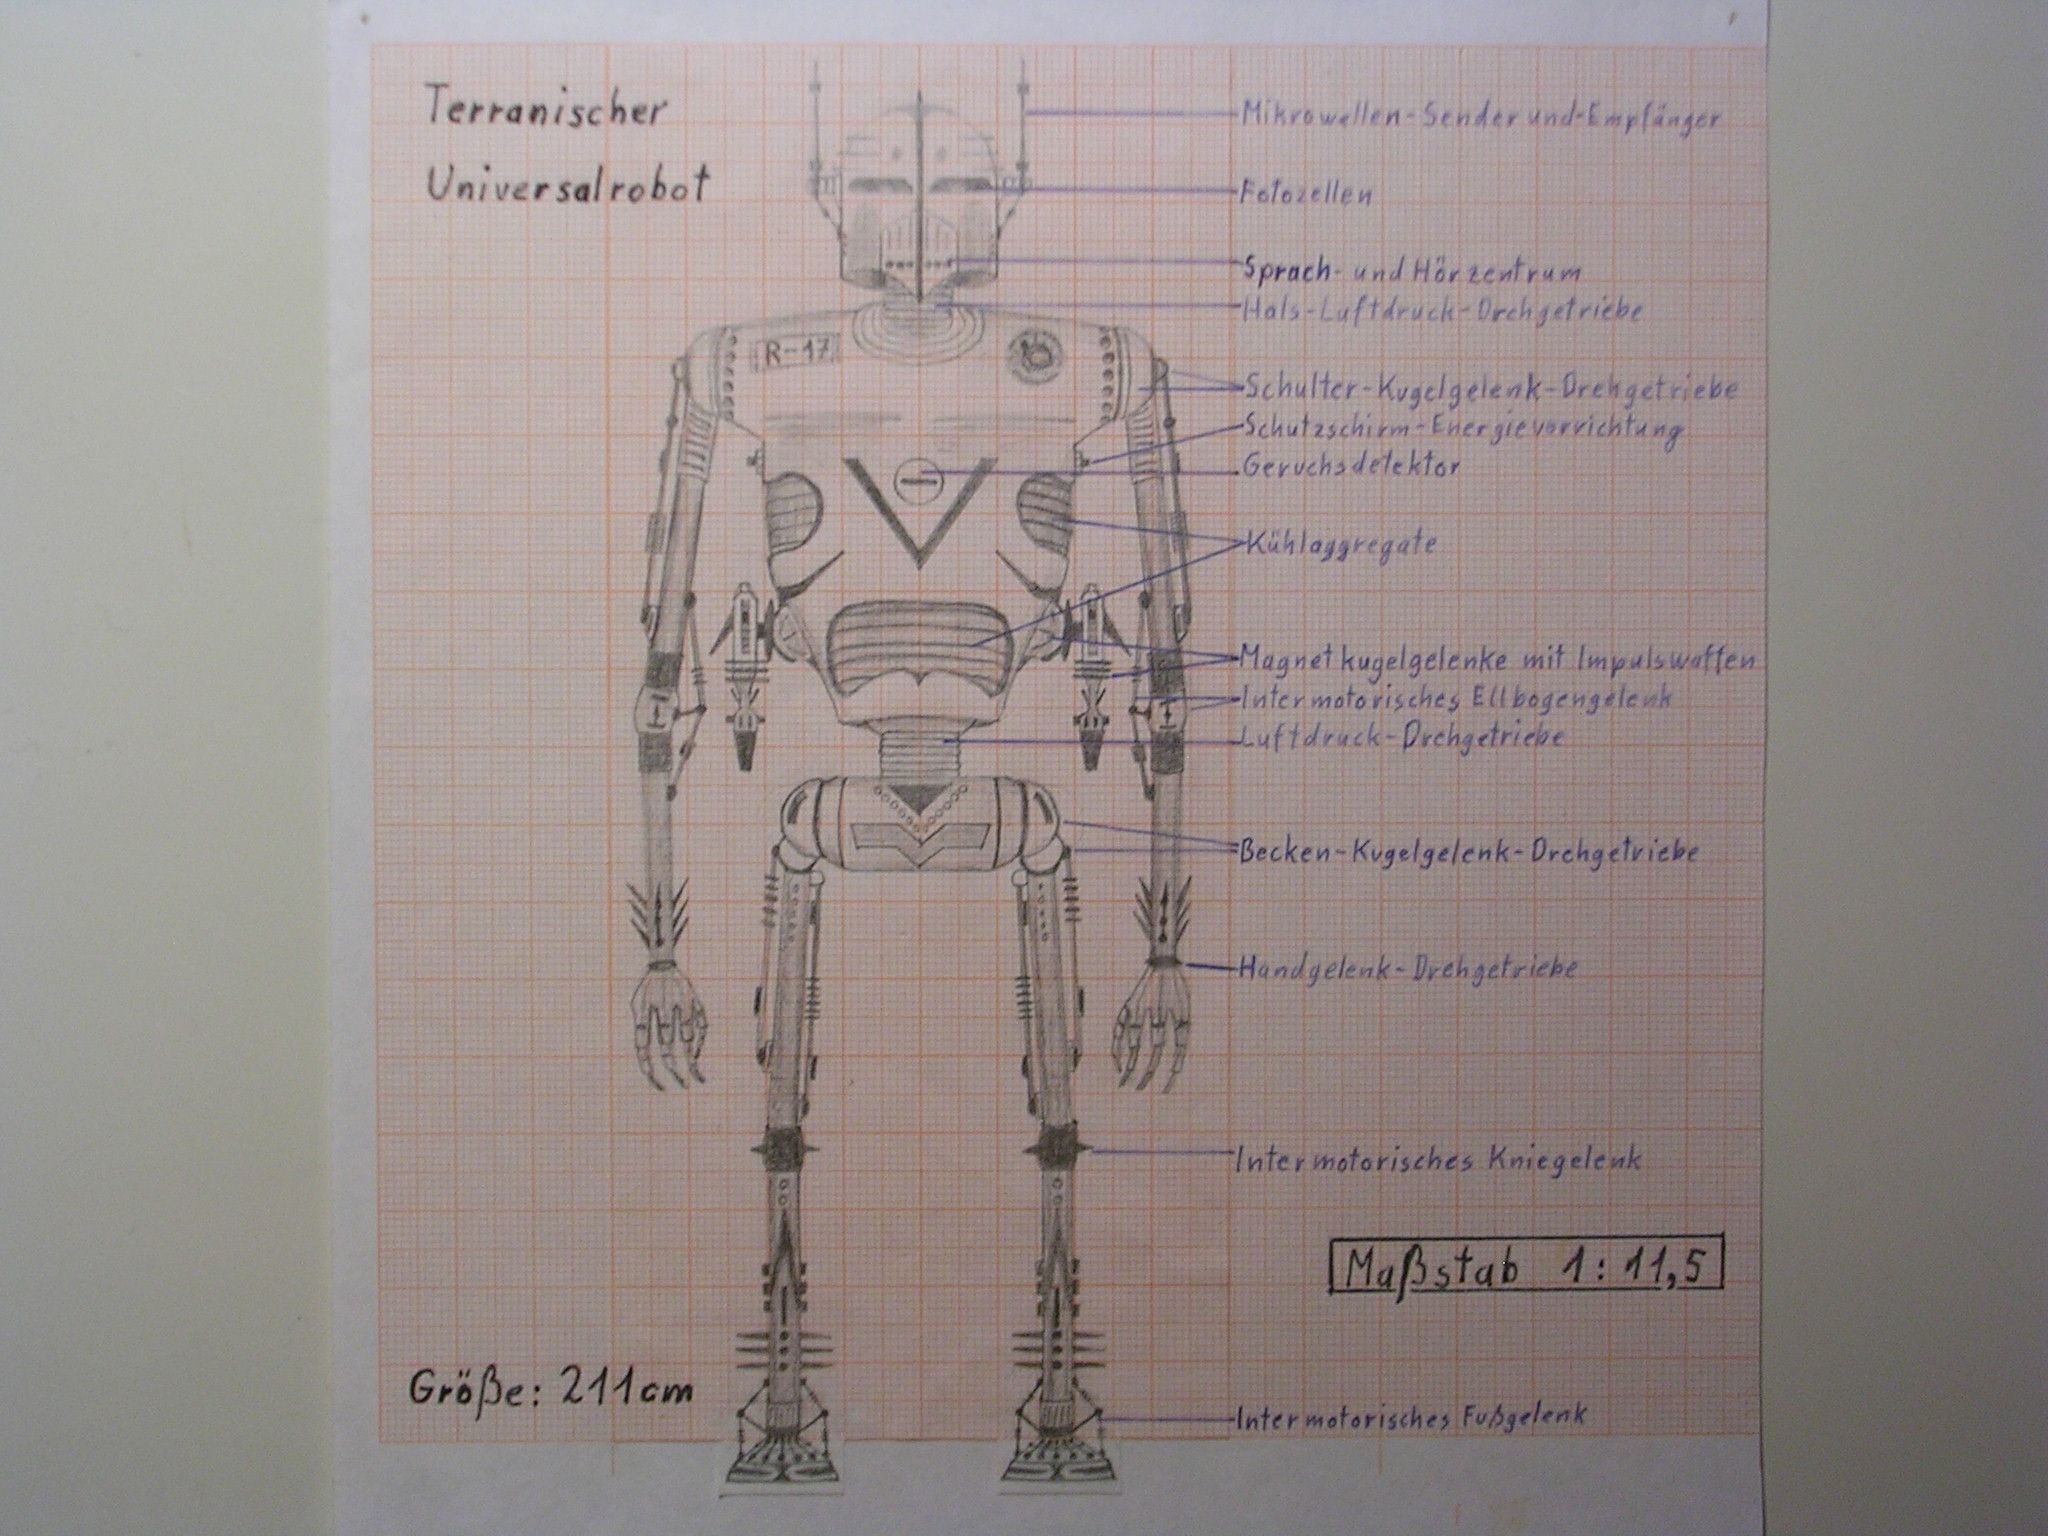 Terranischer
Universalrobot
Mikrowellen-Sender und-Empfänger
Fotozellen
Sprach- und Hörzentrum
Hals-Luftdruck-Drehgetriebe
R-17
Schulter-Kugelgelenk-Drehgetriebe
Schutzschirm-Energievorrichtung
Geruchsdetektor
Kühlaggregate
Magnetkugelgelenke mit Impulswaffen
Intermotorisches Ellbogengelenk
Luftdruck-Drehgetriebe
Becken-Kugelgelenk-Drehgetriebe
Handgelenk-Drehgetriebe
Intermotorisches Kniegelenk
Maßstab 1:11,5
Größe: 211cm
Intermotorisches Fußgelenk